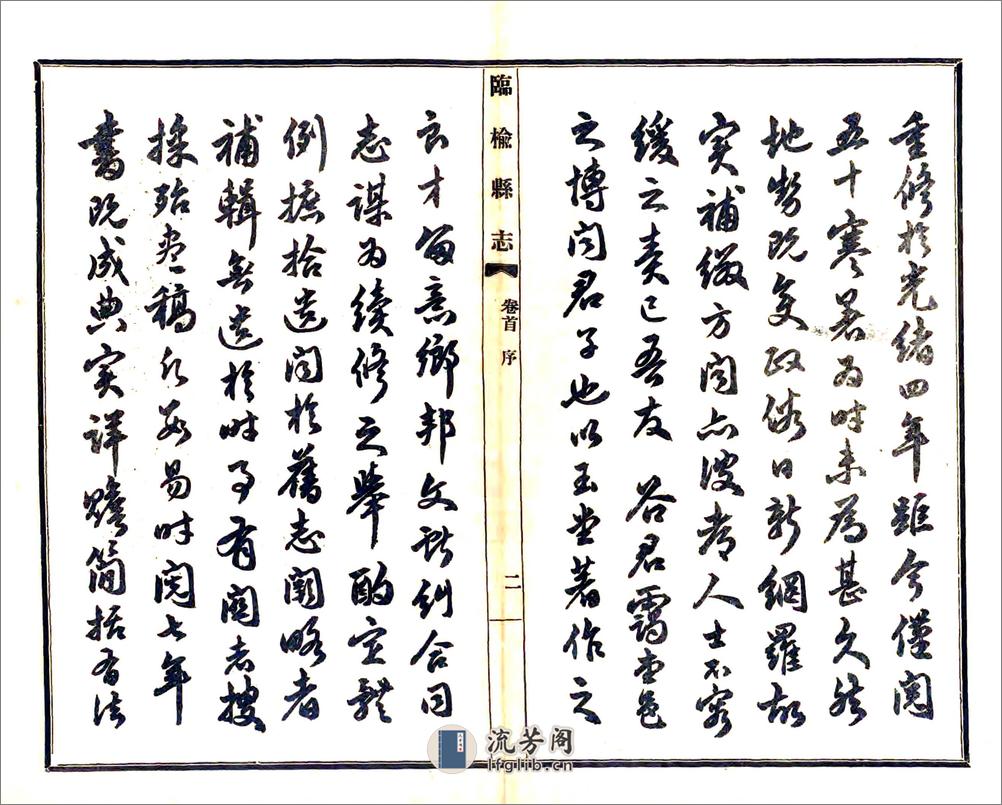 重修於光緒四年距今僅閱
五十寒暑為時未為甚久然
地勢既變政俗日新網羅故
實補綴方聞亦人士不容
緩之責已吾友 谷君靄堂邑
之博聞君子也以玉堂著作之
臨榆縣志 卷首 序 二
良才留意鄉邦文獻糾合同
志謀為續修之舉酌定體
例摭拾遺聞於舊志闕略者
補輯無遺於時事有關者搜
採殆盡稿凡數易時閱七年
書既成典實詳贍簡括有法
流芳阁
lfglib.cn